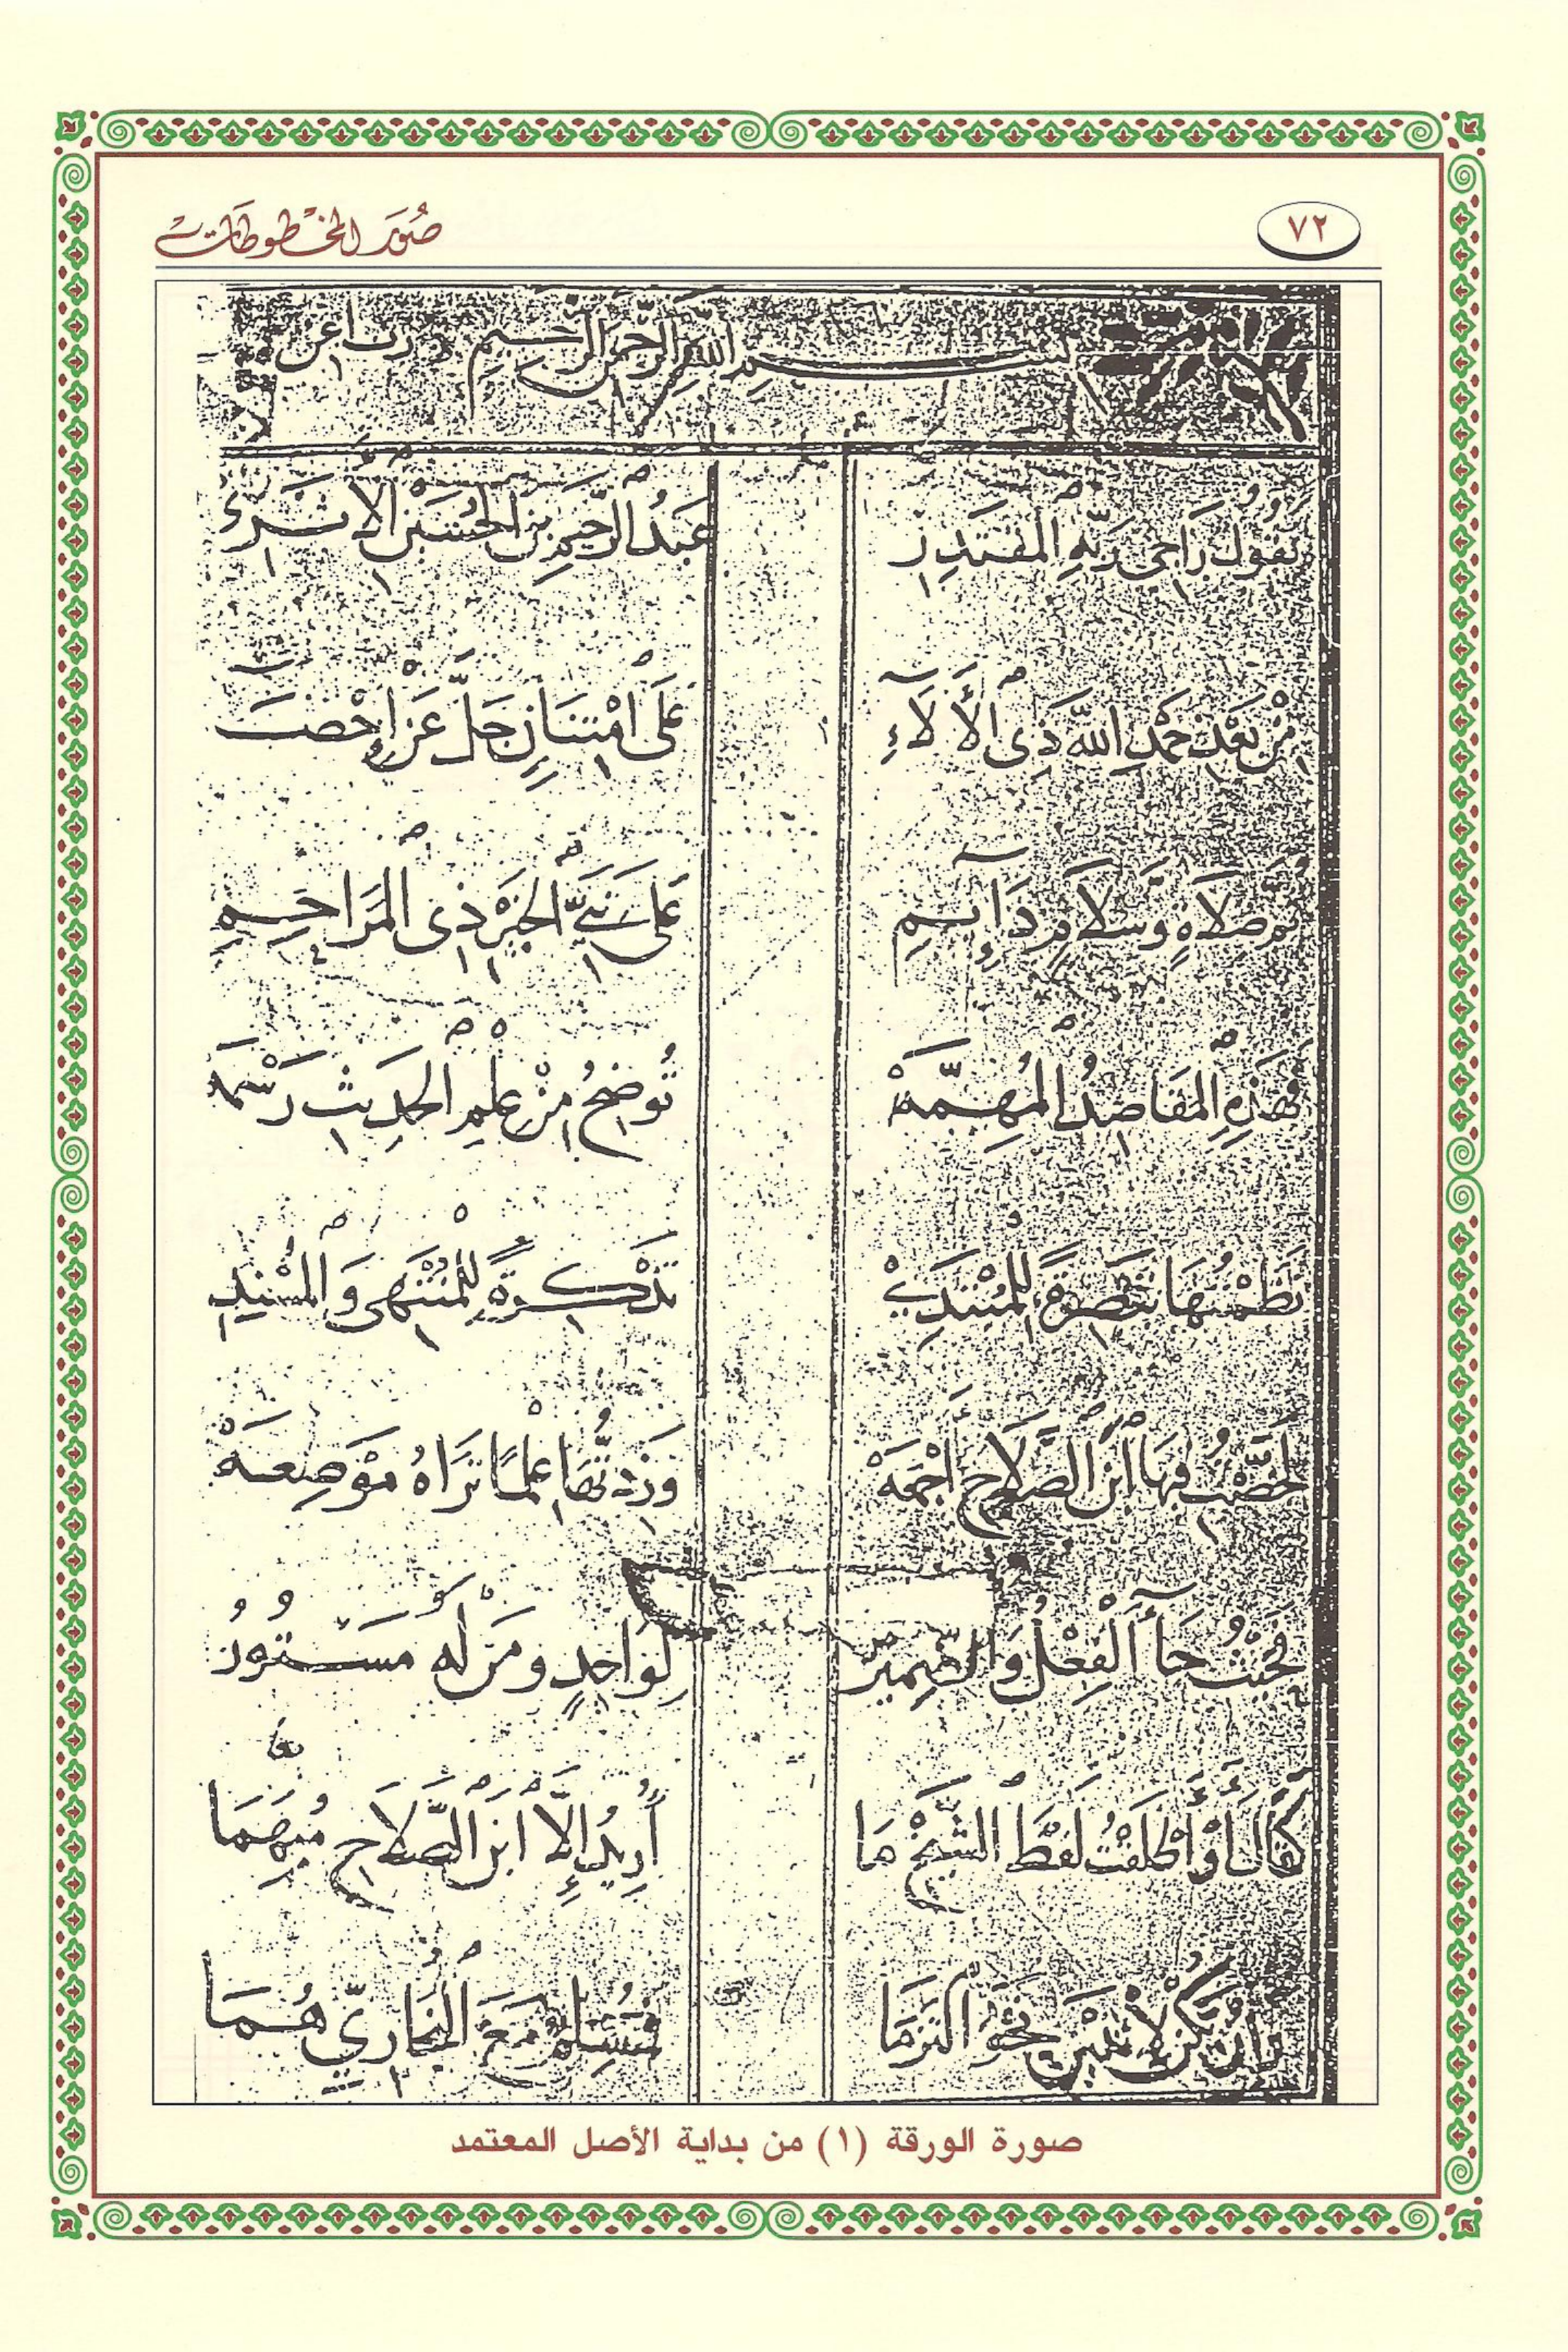 ٧٢
صُوَر المخطوطات
بسم الله الرحمن الرحيم رب أعن
يَقُولُ رَاجِي رَبِّهِ المُقْتَدِرِ عَبْدُ الرَّحِيمِ بنُ الحُسَيْنِ الأَثَرِي
مِنْ بَعْدِ حَمْدِ اللهِ ذِي الآلَاءِ عَلَى امْتِنَانٍ جَلَّ عَنْ إِحْصَاءِ
ثُمَّ صَلَاةٍ وَسَلَامٍ دَائِمِ عَلَى نَبِيِّ الخَيْرِ ذِي المَرَاحِمِ
فَهَذِهِ المَقَاصِدُ المُهِمَّهْ تُوضِحُ مِنْ عِلْمِ الحَدِيثِ رَسْمَهْ
نَظَمْتُهَا تَبْصِرَةً لِلْمُبْتَدِي تَذْكِرَةً لِلْمُنْتَهِي وَالمُسْنِدِ
لَخَّصْتُ فِيهَا ابْنَ الصَّلَاحِ أَجْمَعَهْ وَزِدْتُهَا عِلْمًا تَرَاهُ مَوْضِعَهْ
فَحَيْثُ جَاءَ الْفِعْلُ وَالضَّمِيرُ لِوَاحِدٍ وَمَنْ لَهُ مَسْتُورُ
كَقَالَ أَوْ أَطْلَقْتُ لَفْظَ الشَّيْخِ مَا أُرِيدُ إِلَّا ابْنَ الصَّلَاحِ مُبْهَمَا
وَإِنْ يَكُنْ لِاثْنَيْنِ نَحْوُ الْتَزَمَا فَمُسْلِمٌ مَعَ البُخَارِيِّ هُمَا
صورة الورقة (١) من بداية الأصل المعتمد